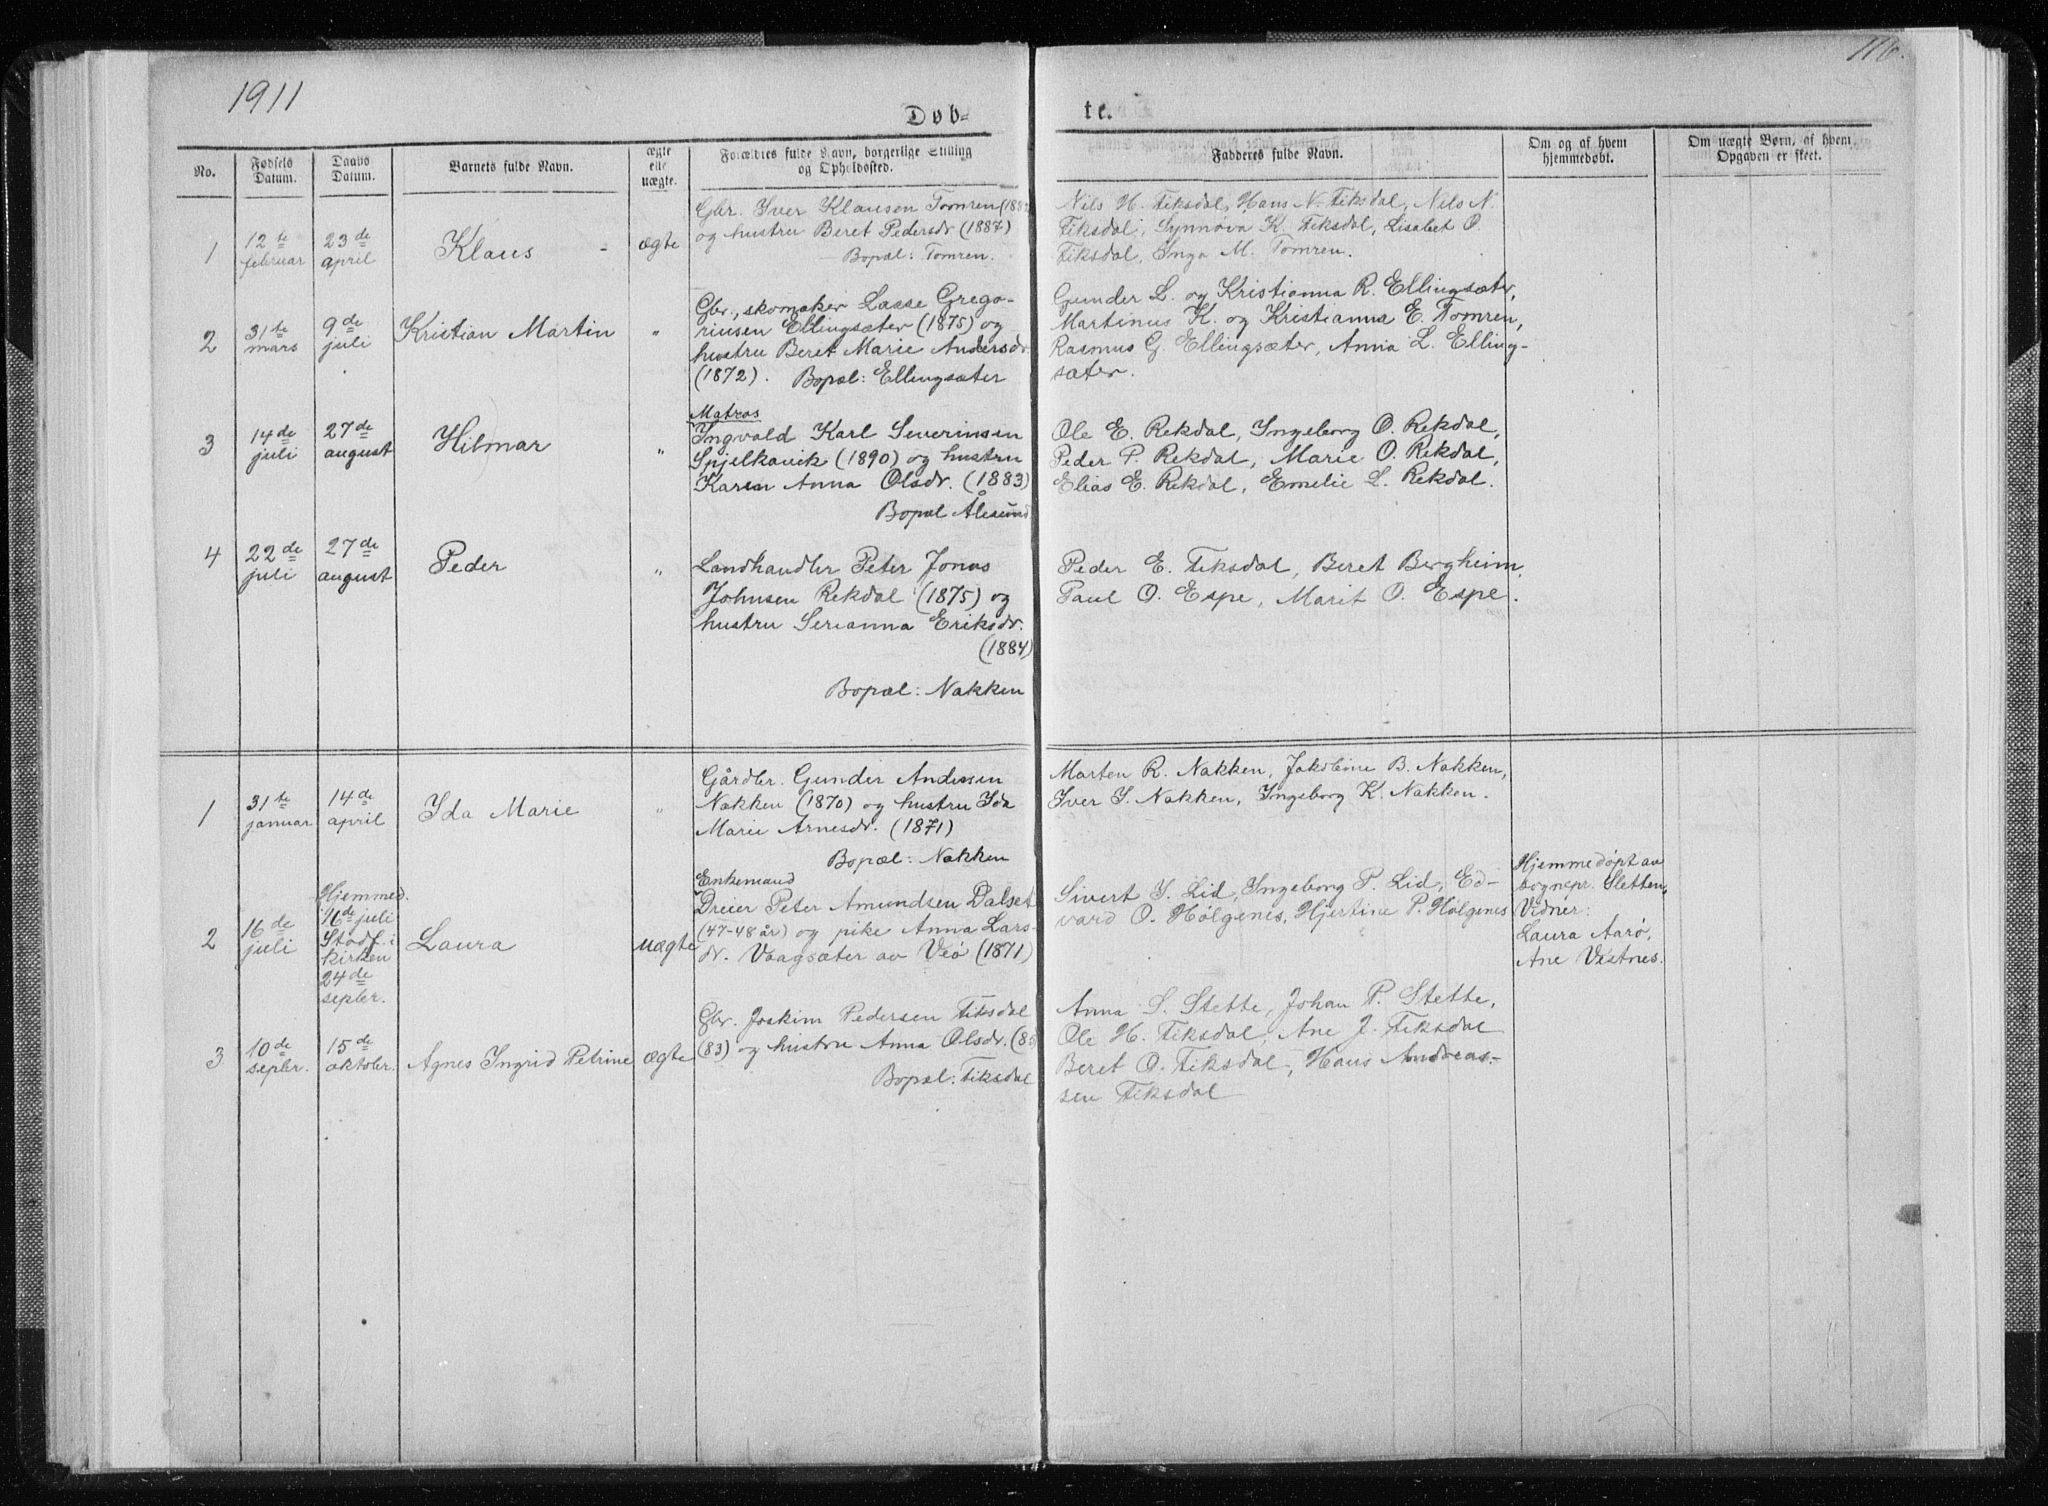 1911
116.
Døb-
te.
No.
Fødsels Datum.
Daabs Datum.
Barnets fulde Navn.
ægte elle uægte.
Forældres fulde Navn, borgerlige Stilling
og Opholdssted.
Fadderes fulde Navn.
Om og af hvem
hjemmedøbt.
Om uægte Børn, af hvem
Opgaven er skeet.
1
12te
februar
23de
april
Klaus
ægte
Gbr. Iver Klausen Tomren
og hustru Beret Pedersdr (1887)
Bopæl: Tomren.
Nils H. Fiksdal, Hans N. Fiksdal, Nils N.
Fiksdal, Synnøva K. Fiksdal, Lisabet O.
Fiksdal, Inga M. Tomren.
2
31te
mars
9de
juli
Kristian Martin
"
Gbr., skomaker Lasse Grego-
riusen Ellingsæter (1875) og
hustru Beret Marie Andersdr.
(1872). Bopæl: Ellingsæter
Gunder L. og Kristianna R. Ellingsæter,
Martinus K. og Kristianna E. Tomren,
Rasmus G. Ellingsæter, Anna L. Elling-
sæter.
3
14de
juli
27de
august
Hilmar
"
Matros
Ingvald Karl Severinsen
Spjelkavik (1890) og hustru
Karen Anna Olsdr. (1883)
Bopæl Ålesund
Ole E. Rekdal, Ingeborg O. Rekdal,
Peder P. Rekdal, Marie O. Rekdal,
Elias E. Rekdal, Emelie L. Rekdal.
4
22de
juli
27de
august
Peder
"
Landhandler Peter Jonas
Johnsen Rekdal (1875) og
hustru Serianna Eriksdr.
(1884)
Bopæl: Nakken
Peder E. Fiksdal, Beret Bergheim,
Paul O. Espe, Marit O. Espe.
1
31te
januar
14de
april
Ida Marie
"
Gårdbr. Gunder Andersen
Nakken (1870) og hustru Ida
Marie Arnesdr. (1871)
Bopæl: Nakken
Marten R. Nakken, Jakobine B. Nakken,
Iver S. Nakken, Ingeborg K. Nakken.
2
16de
juli
Hjemmed.
16de juli
Stadf. i
kirken
24de
septbr.
Laura
uægte
Enkemand
Dreier Peter Amundsen Dalset
(47-48 år) og pike Anna Lars-
dr. Vaagsæter av Veø (1871)
Sivert I. Lid, Ingeborg P. Lid, Ed-
vard O. Hølgenes, Hjertine P. Hølgenes
Hjemmedøpt av
sognepr. Sletten,
Vidner:
Laura Aarø,
Ane Vestnes.
3
10de
septbr.
15de
oktober.
Agnes Ingrid Petrine
ægte
Gbr. Joakim Pedersen Fiksdal
(83) og hustru Anna Olsdr.
Bopæl: Fiksdal
Anna S. Stette, Johan P. Stette,
Ole H. Fiksdal, Ane J. Fiksdal
Beret O. Fiksdal, Hans Andreas-
sen Fiksdal